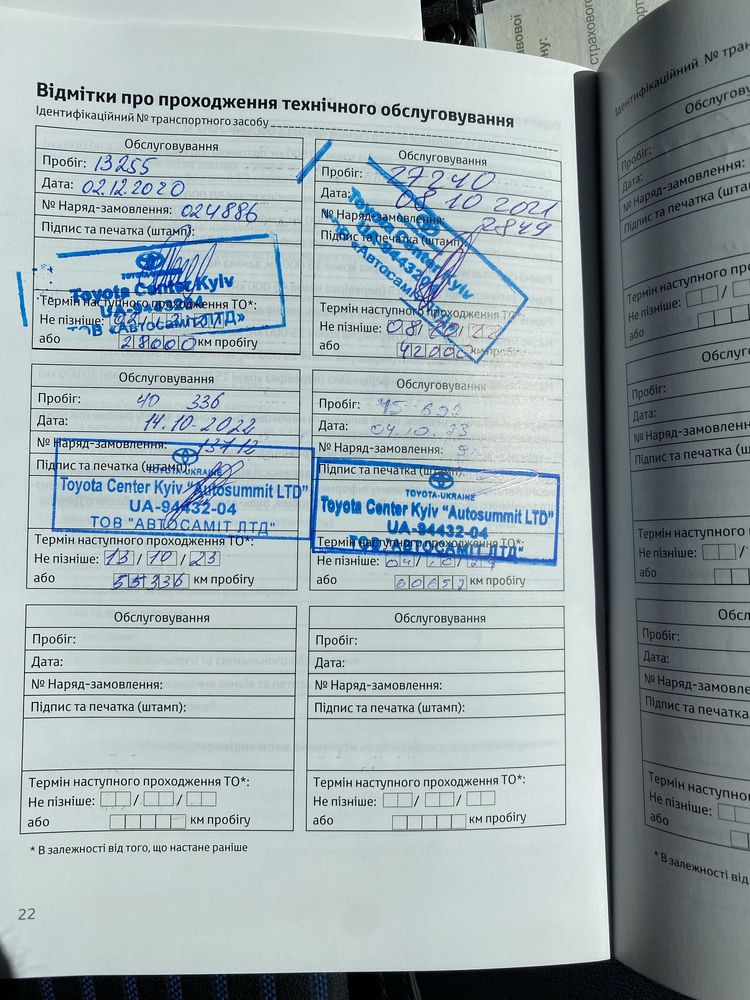 Відмітки про проходження технічного обслуговування
Ідентифікаційний № транспортного засобу
Обслуговування
Пробіг: 13255
Дата: 02.12.2020
№ Наряд-замовлення: 024886
Підпис та печатка (штамп):
TOYOTA-UKRAINE
Toyota Center Kyiv
UA-94432-04
ТОВ «АВТОСАМІТ ЛТД»
Термін наступного проходження ТО*:
Не пізніше:
або 28000 км пробігу
Обслуговування
Пробіг: 27240
Дата: 08 10 2021
№ Наряд-замовлення: 2849
Підпис та печатка (штамп)
Toyota Center Kyiv
UA-94432-04
ТОВ «Автосаміт
Термін наступного проходження ТО*:
Не пізніше: 08/10/22
або 42000 км пробігу
Обслуговування
Пробіг: 40 336
Дата: 14.10.2022
№ Наряд-замовлення: 13712
Підпис та печатка (штамп):
TOYOTA-UKRAINE
Toyota Center Kyiv "Autosummit LTD"
UA-94432-04
ТОВ "АВТОСАМІТ ЛТД"
Термін наступного проходження ТО*:
Не пізніше: 13/10/23
або 55336 км пробігу
Обслуговування
Пробіг: 45-652
Дата: 04.10.23
№ Наряд-замовлення:
Підпис та печатка (штамп):
TOYOTA-UKRAINE
Toyota Center Kyiv "Autosummit LTD"
UA-94432-04
ТОВ "АВТОСАМІТ ЛТД"
Термін наступного проходження ТО*:
Не пізніше: 04/10/24
або 60652 км пробігу
Обслуговування
Пробіг:
Дата:
№ Наряд-замовлення:
Підпис та печатка (штамп):
Термін наступного проходження ТО*:
Не пізніше:
або км пробігу
Обслуговування
Пробіг:
Дата:
№ Наряд-замовлення:
Підпис та печатка (штамп):
Термін наступного проходження ТО*:
Не пізніше:
або км пробігу
* В залежності від того, що настане раніше
22
страхового
Ідентифікаційний №
Пробіг:
Дата:
№ Наряд-замовлення
Підпис та печатка (штамп
Термін наступного
Не пізніше:
або
Пробіг:
Дата:
№ Наряд-замовлення
Підпис та печатка
Термін наступного
Не пізніше:
або
Пробіг:
Дата:
№ Наряд-замовлення
Підпис та печатка
Термін наступного
Не пізніше:
або
* В залежності від